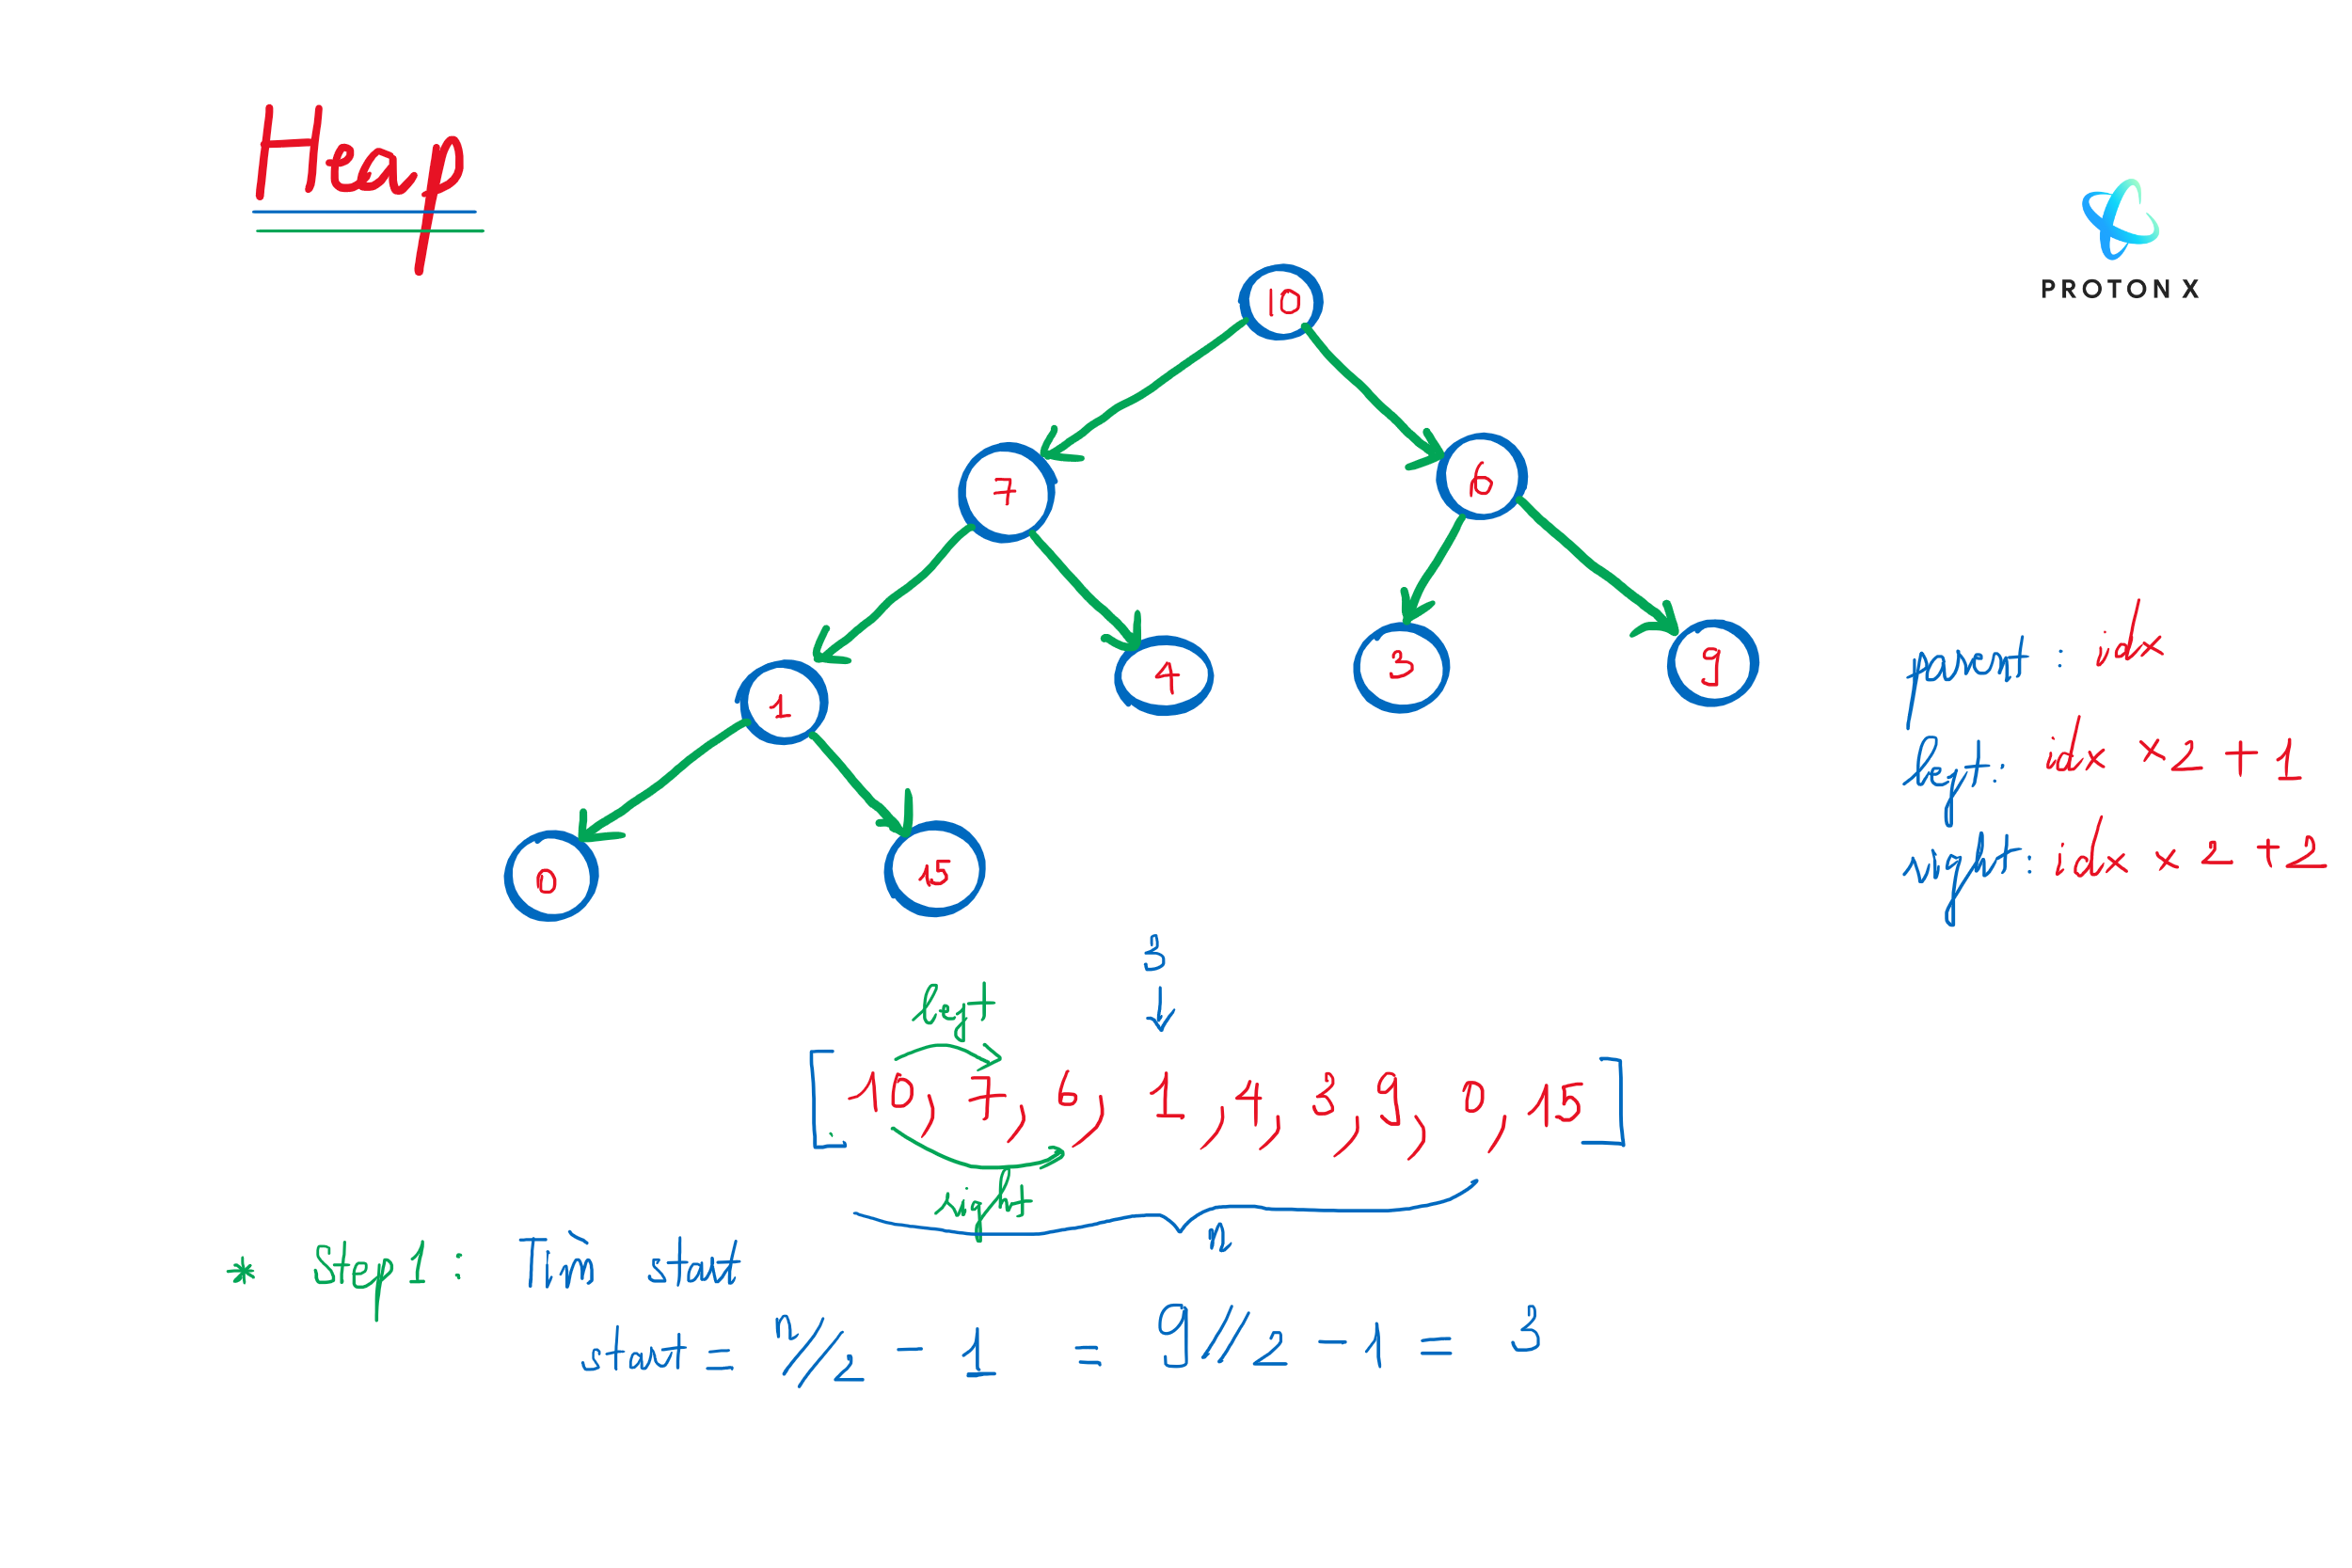 Heap
PROTON X
10
7
6
1
4
3
9
0
15
parent : idx
left: idx × 2 + 1
right: idx × 2 + 2
3
left
[10, 7, 6, 1, 4, 3, 9, 0, 15]
right
n
* Step 1: Tìm start
start = n//2 - 1 = 9//2 - 1 = 3